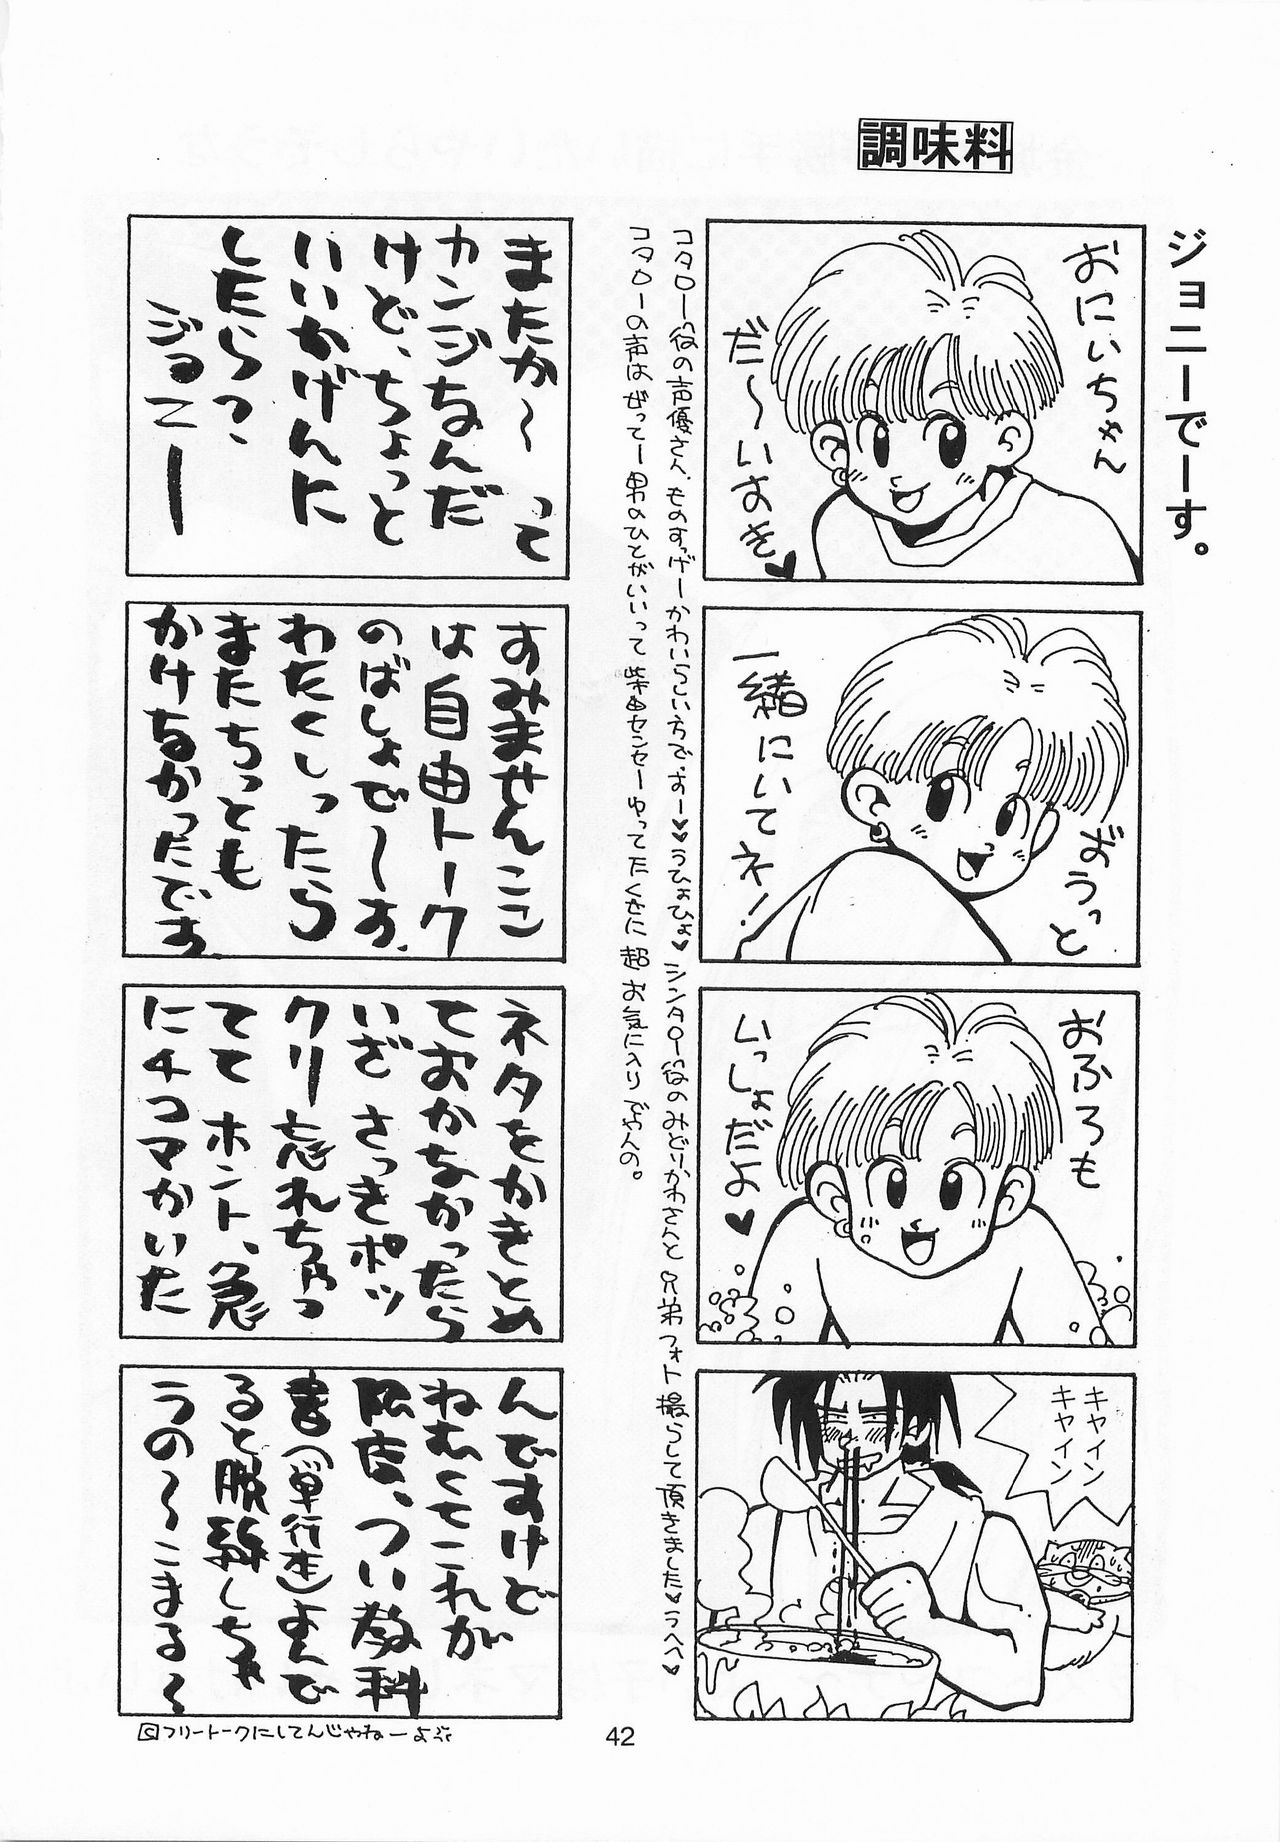 調味料
ジョニーでーす。
おにいちゃん
だ〜いすき♥
ずうっと
一緒にいてネ!
おふろも
いっしょだよ♥
キャイン
キャイン
コタロー役の声優さん、ものすっげーかわいらしい方で、すー♥♥うひょひょ♥シンタロー役のみどりかわさんと兄弟フォト撮らして頂きました♥うへへ♥
コタローの声はぜってー男のひとがいいって柴田センセーゆってたくせに超お気に入りでやんの。
またか〜って
カンジなんだ
けど、ちょっと
いいかげんに
したらっ、
ジョニー
すみませんここ
は自由トーク
のばしょで〜す。
わたくしったら
またちっとも
かけなかったです
ネタをかきとめ
ておかなかったら
いざさっきポッ
クリ忘れちゃっ
ててホント、急
に4コマかいた
んですけど
ねむくてこれが
限度、つい教科
書(単行本)よんで
ると脱線しちゃ
うの〜こまる〜
フリートークにしてんじゃねーよ
42